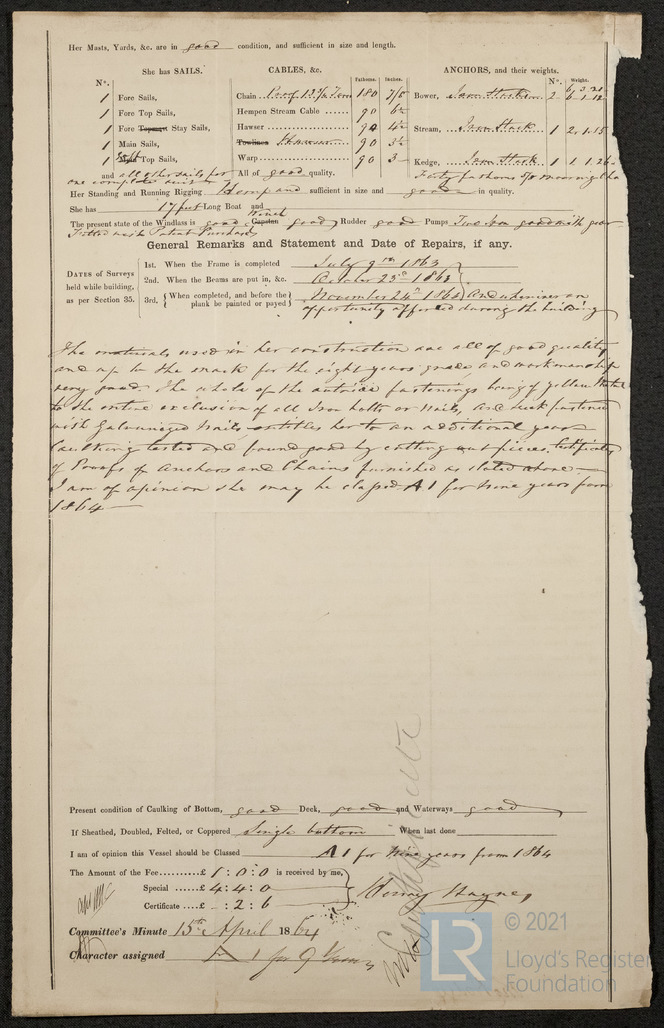 Her Masts, Yards, &c. are in good condition, and sufficient in size and length.
She has SAILS. CABLES, &c. ANCHORS, and their weights.
Nº. Fathoms. Inches. Nº. Weight.
1 Fore Sails, Chain Proof 13 3/4 Tons 180 7/8 Bower, 2
1 Fore Top Sails, Hempen Stream Cable 90 6½
1 Fore Topmast Stay Sails, Hawser 90 4½ Stream, 1 2.1.15
1 Main Sails, Towlines Hawser 90 3½
1 Top Sails, Warp 90 3 Kedge, 1 1.1.26
and all other sails for All of good quality. Forty fathoms
one complete suit
Her Standing and Running Rigging Hemp and sufficient in size and good in quality.
She has 17 feet Long Boat and
The present state of the Windlass is good Capstan Winch good Rudder good Pumps Two Iron good with gear
Fitted with Patent Purchase
General Remarks and Statement and Date of Repairs, if any.
DATES of Surveys held while building, as per Section 35.
1st. When the Frame is completed July 9th 1863
2nd. When the Beams are put in, &c. October 23rd 1863
3rd. When completed, and before the plank be painted or payed November 24th 1863 And when ever an
opportunity afforded during the building
The materials used in her construction are all of good quality
and up to the mark for the eight years grade and workmanship
very good. The whole of the outside fastenings being of yellow Metal
to the entire exclusion of all Iron bolts or Nails, and deck fastened
with Galvanized Nails entitles her to an additional year
Caulking tested and found good by cutting out pieces. Certificates
of Proofs of Anchors and Chains furnished as stated above.
I am of opinion she may be classed A1 for Nine years from
1864
Present condition of Caulking of Bottom, good Deck, good and Waterways good
If Sheathed, Doubled, Felted, or Coppered Single bottom When last done
I am of opinion this Vessel should be Classed A1 for Nine years from 1864
The Amount of the Fee £1:0:0 is received by me,
Special £4:4:0
Certificate £-:2:6
Committee's Minute 15th April 1864
Character assigned A 1 for 9 Years
LR
© 2021
Lloyd's Register
Foundation